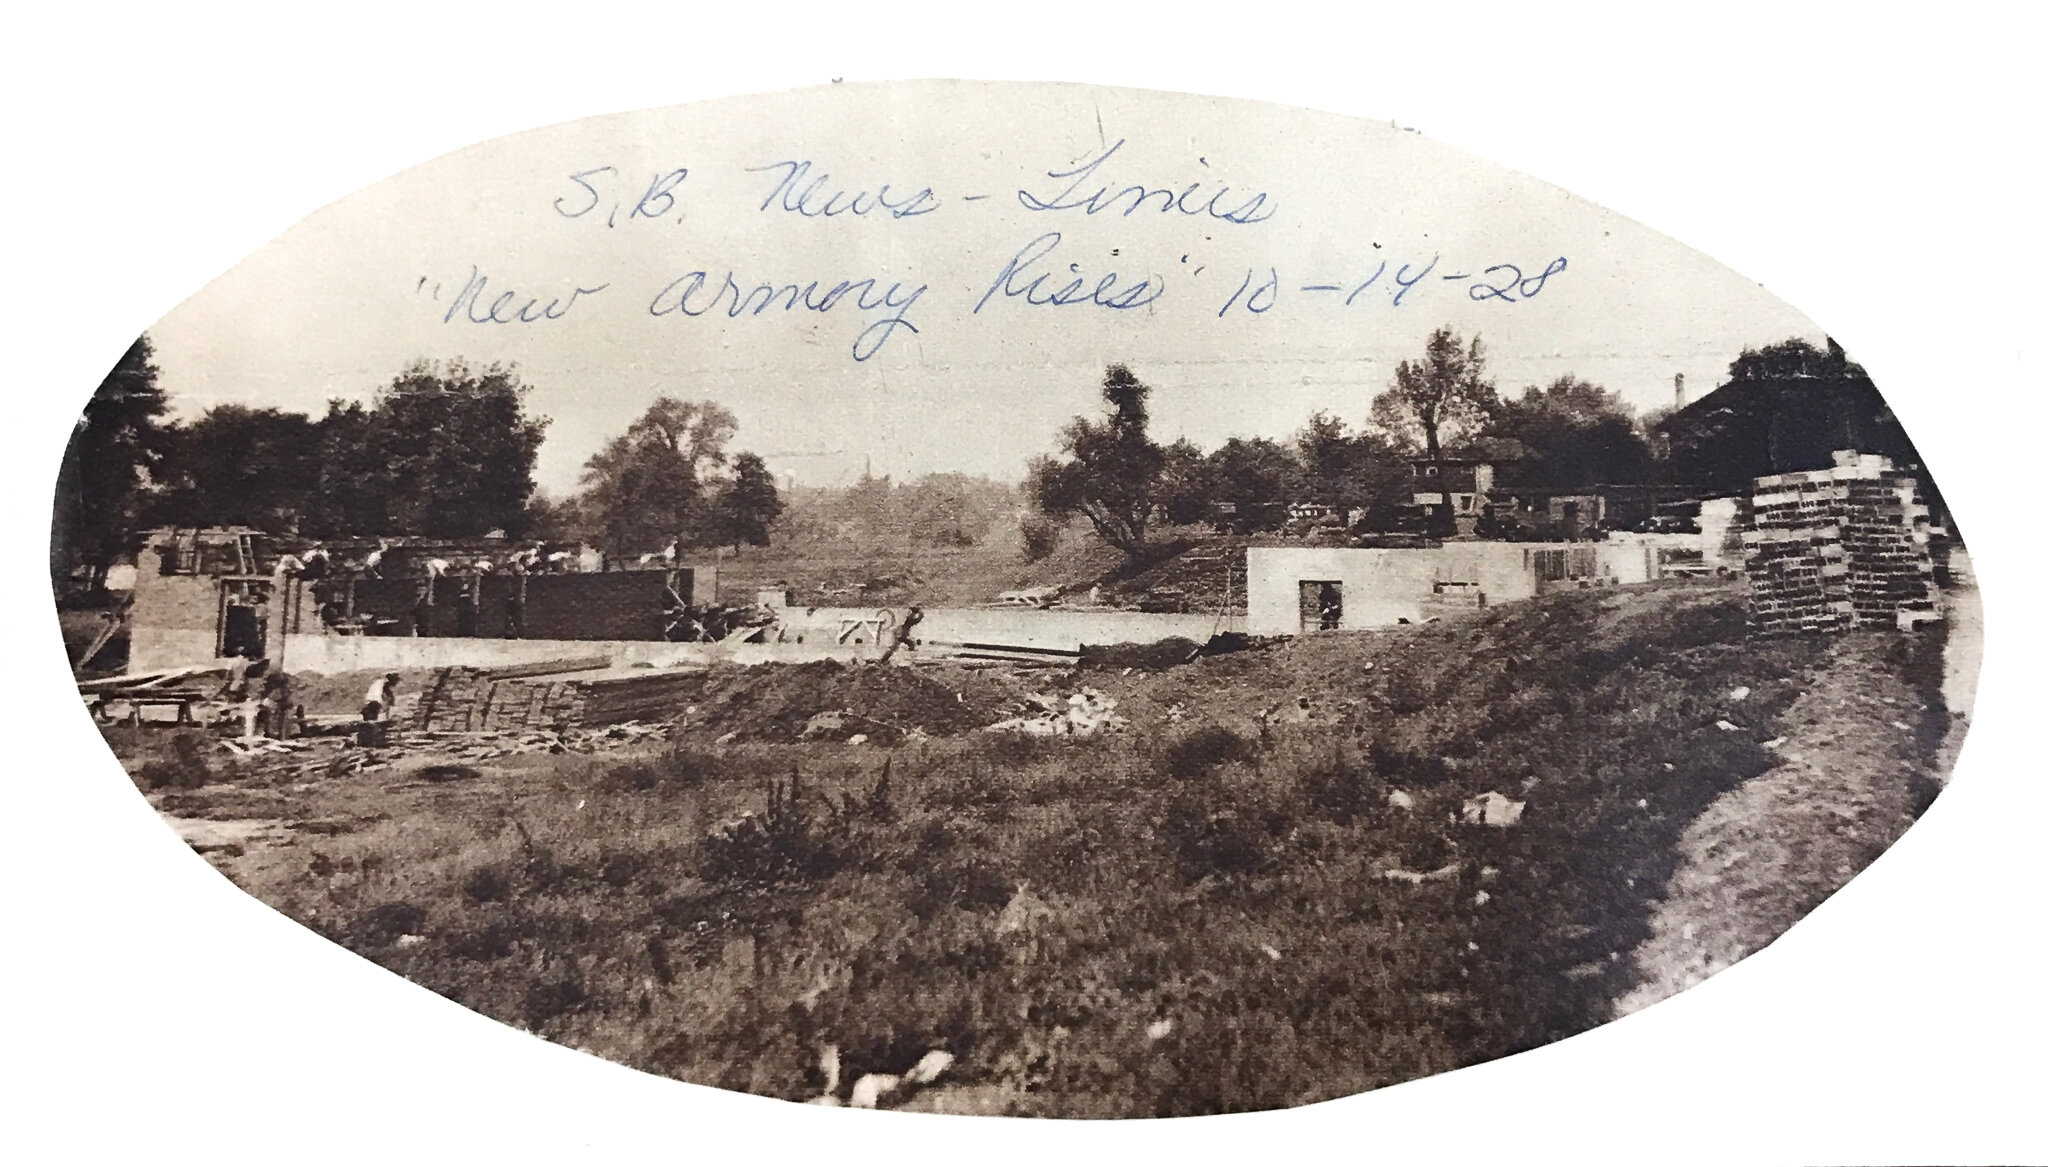 S.B. News-Times
"New Armory Rises" 10-14-28